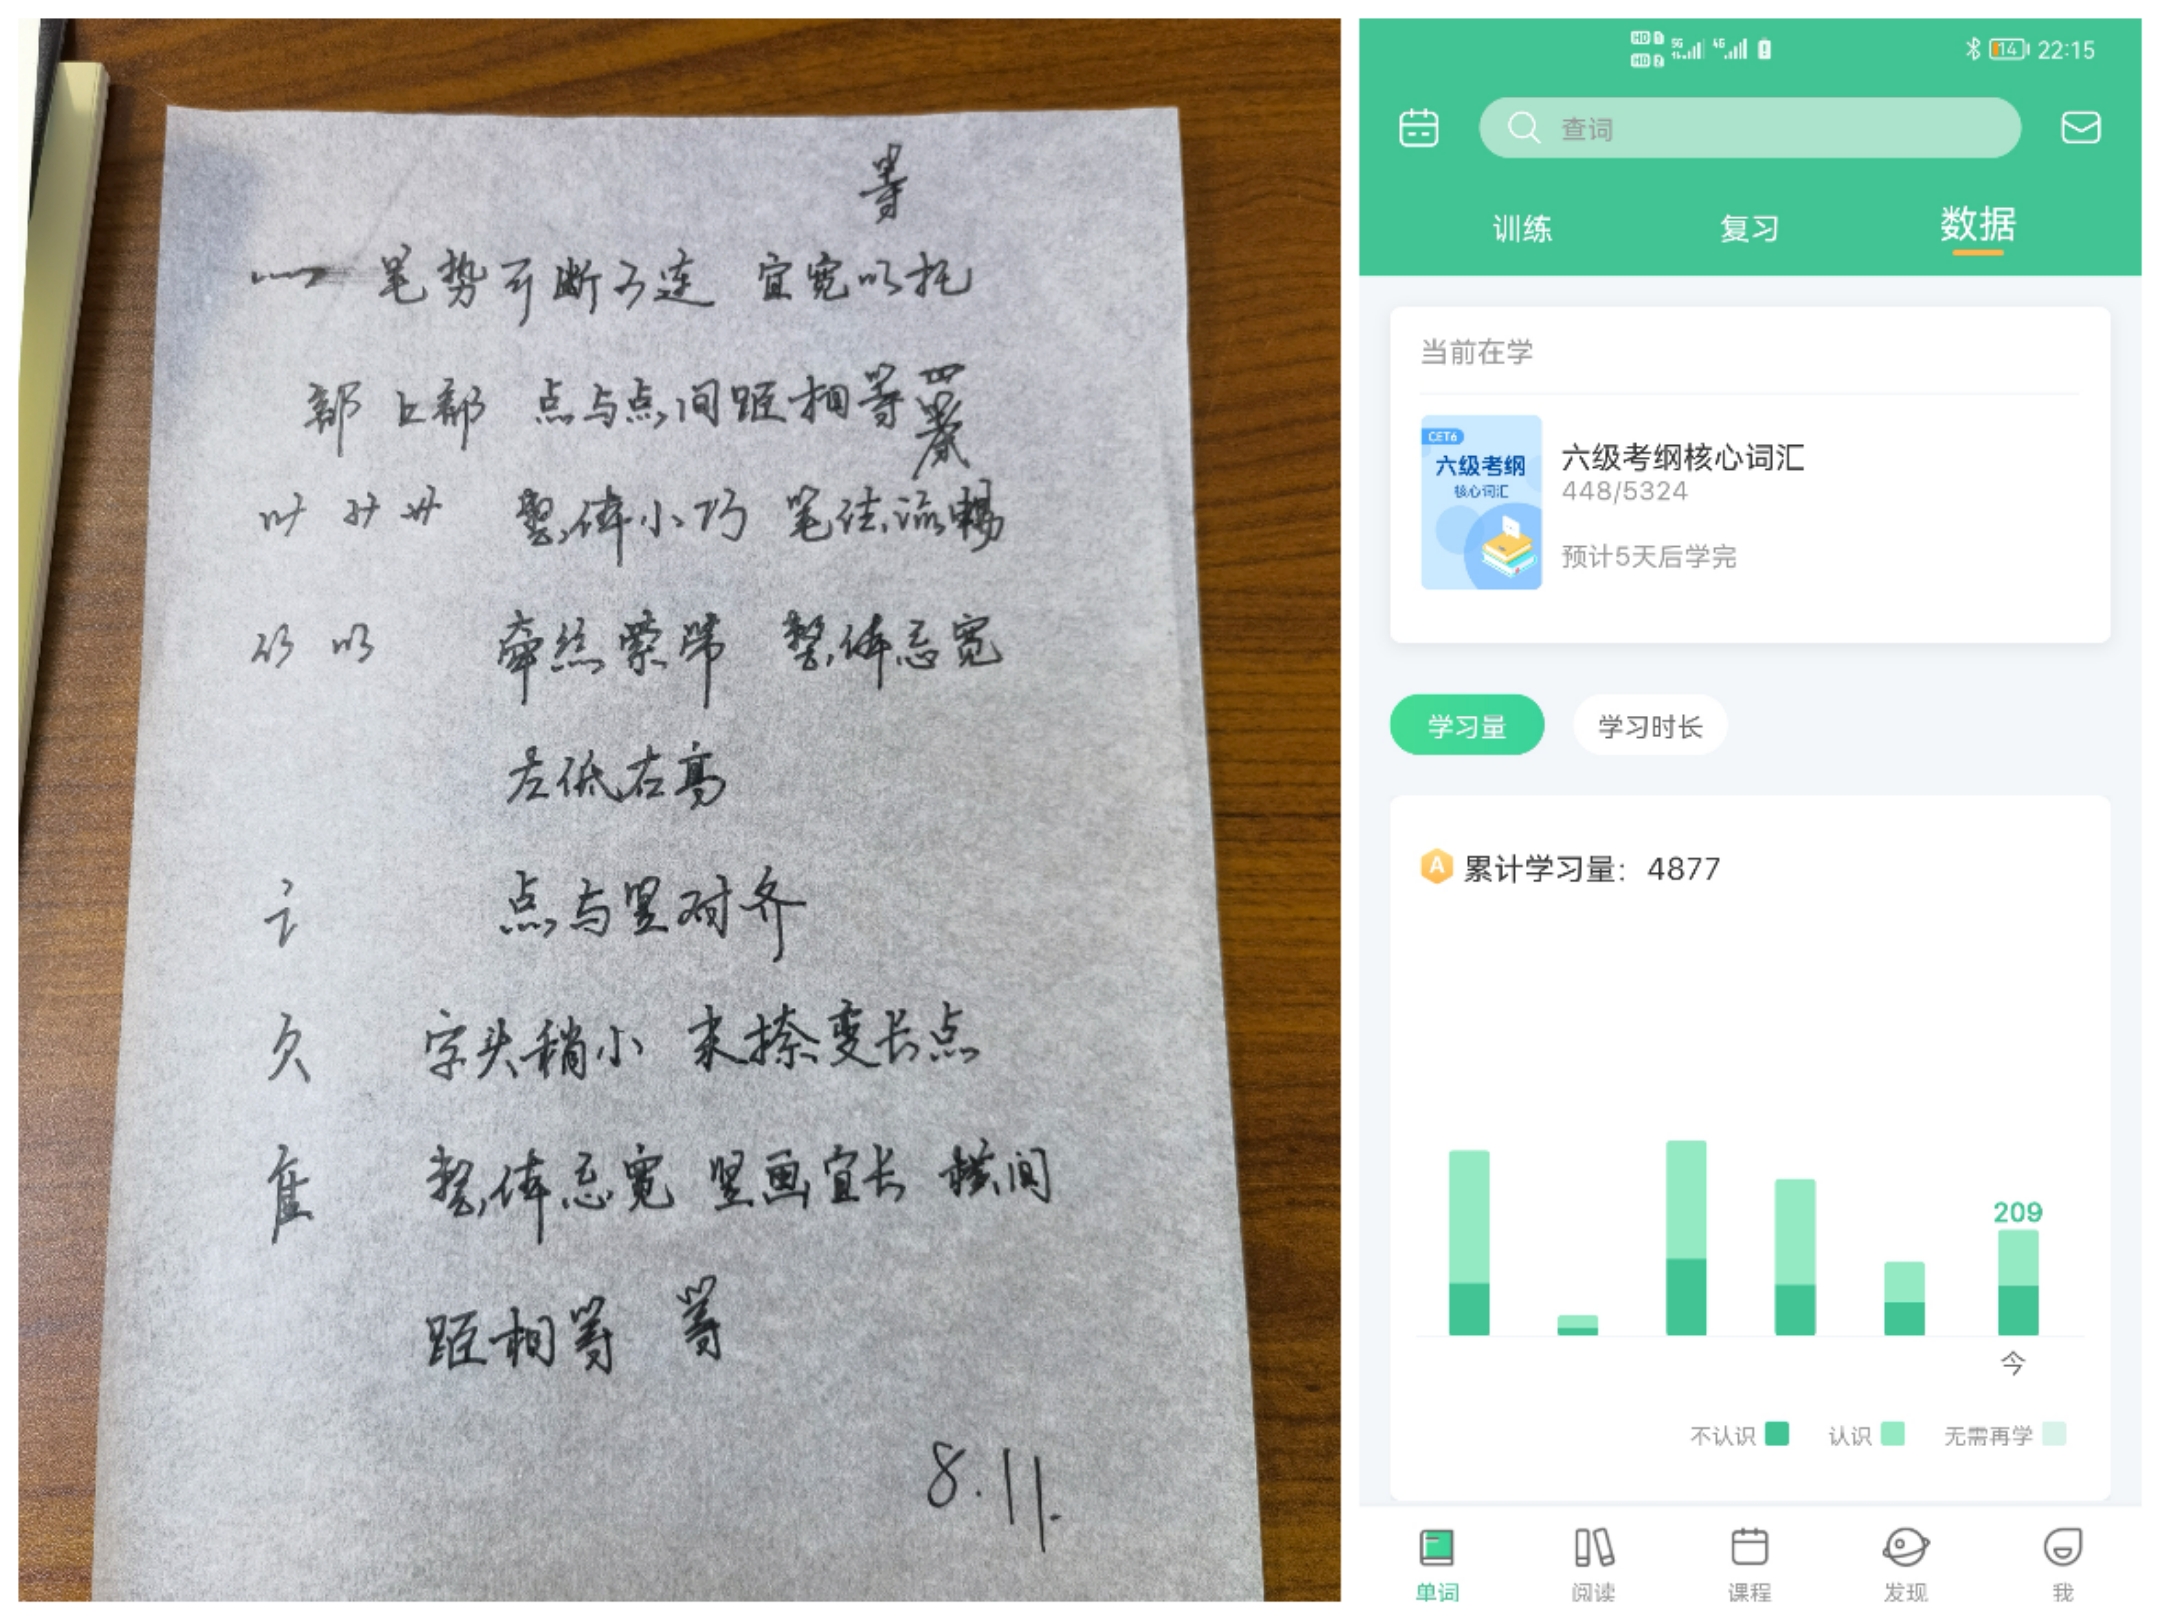 等
笔势可断不连 宜宽以托
部 上部 点与点间距相等
整体小巧 笔法流畅
牵丝萦带 整体忌宽
左低右高
点与竖对齐
字头稍小 末捺变长点
整体忌宽 竖画宜长 横间
距相等 等
8.11.
22:15
14
查词
训练 复习 数据
当前在学
CET6
六级考纲
核心词汇
六级考纲核心词汇
448/5324
预计5天后学完
学习量 学习时长
A 累计学习量：4877
209
今
不认识 认识 无需再学
单词 阅读 课程 发现 我